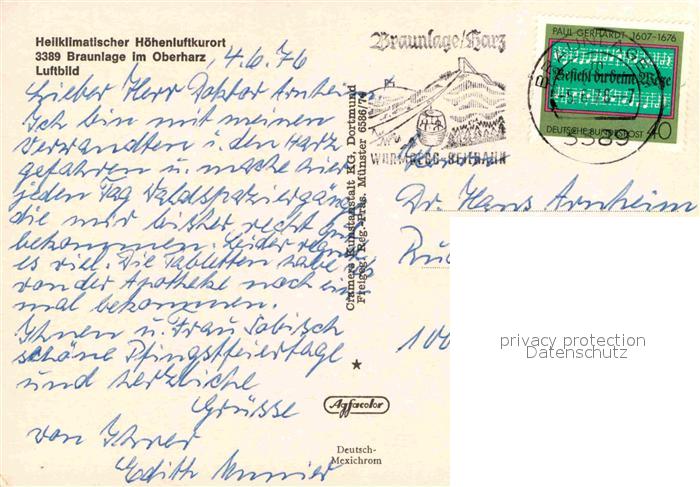 Heilklimatischer Höhenluftkurort
3389 Braunlage im Oberharz
Luftbild
4.6.76
Lieber Herr Doktor Arnheim
Ich bin mit meinen
Verwandten i. den Harz
gefahren u. mache hier
jeden Tag Waldspaziergänge
die mir bisher recht gut
bekommen. Leider regnet
es viel. Die Tabletten habe ich
von der Apotheke noch ein
mal bekommen.
Ihnen u. Frau Sabisch
schöne Pfingstfeiertage
und herzliche
Grüsse
von Ihrer
Edith
Cramers Kunstanstalt KG, Dortmund
Freigeg. Reg.-Präs. Münster 6586/74
Agfacolor
Deutsch-
Mexichrom
Braunlage/Harz
WURMBERG-SEILBAHN
PAUL GERHARDT 1607-1676
Befiehl du deine Wege
DEUTSCHE BUNDESPOST 40
3389
Herrn
Dr. Hans Arnheim
100
privacy protection
Datenschutz